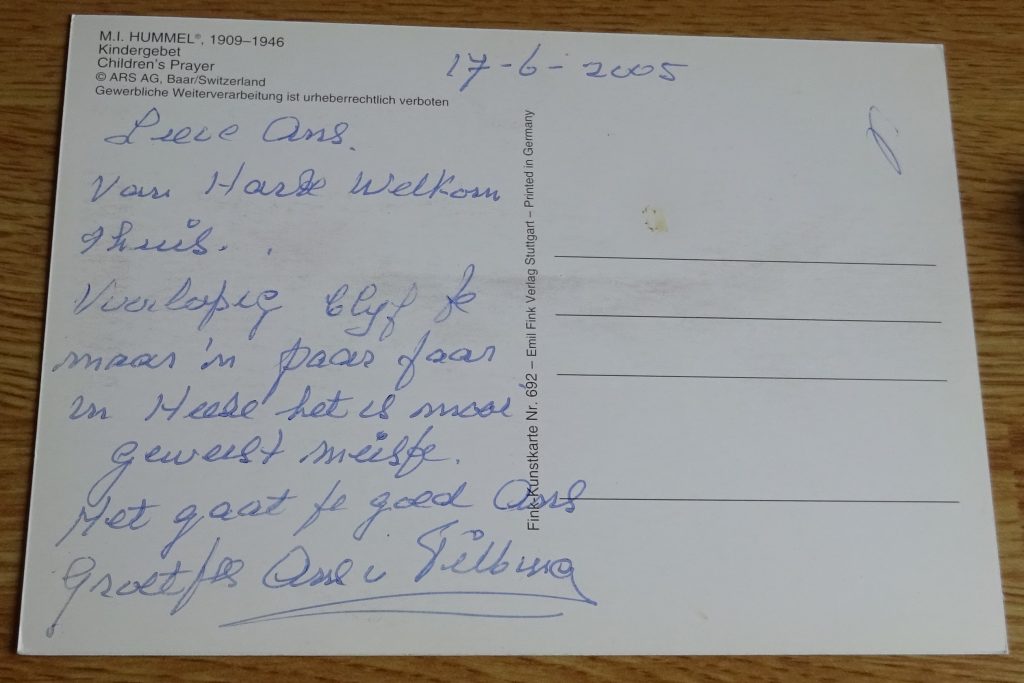 M.I. HUMMEL®, 1909–1946
Kindergebet
Children's Prayer
© ARS AG, Baar/Switzerland
Gewerbliche Weiterverarbeitung ist urheberrechtlich verboten
17-6-2005
Lieve Ans.
Van Harte Welkom
thuis.
Voorlopig blijf je
maar 'n paar jaar
in Heeze het is mooi
geweest meisje.
Het gaat je goed Ans
Groetjes Ans v Tilburg
Fink-Kunstkarte Nr. 692 – Emil Fink Verlag Stuttgart – Printed in Germany